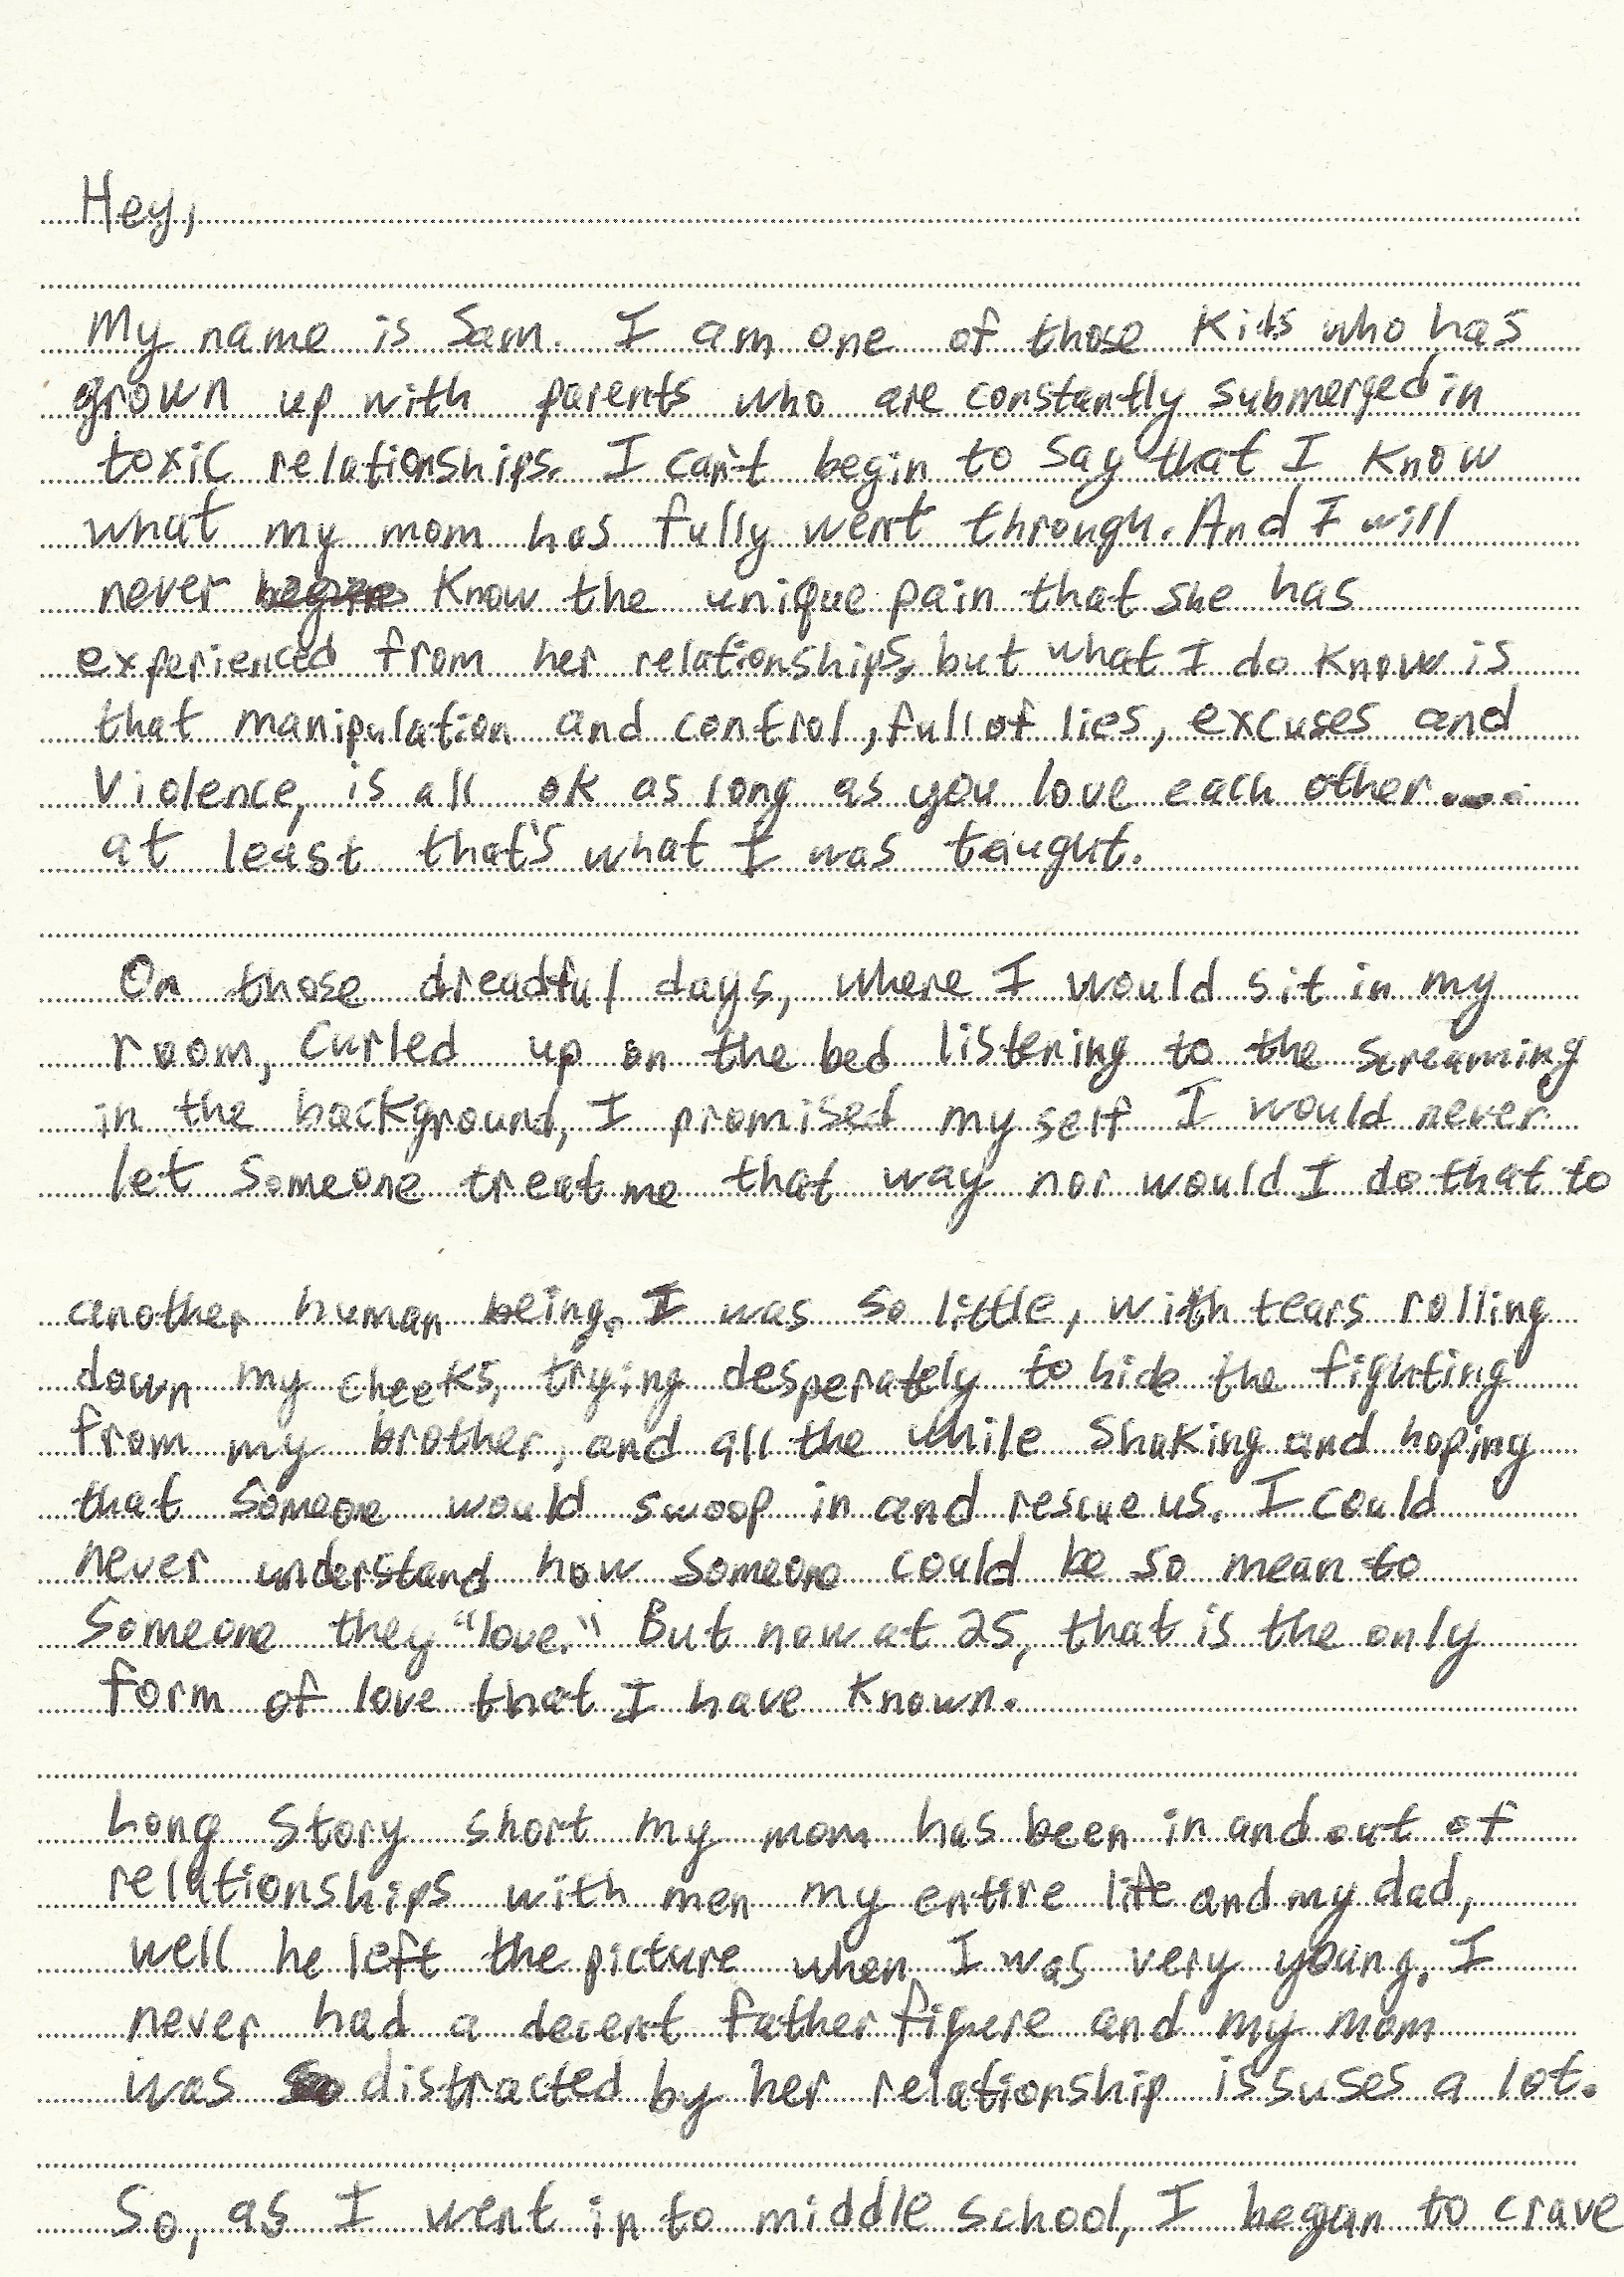 Hey,
My name is Sam. I am one of those kids who has
grown up with parents who are constantly submerged in
toxic relationships. I can't begin to say that I know
what my mom has fully went through. And I will
never begin know the unique pain that she has
experienced from her relationships, but what I do know is
that manipulation and control, full of lies, excuses and
violence, is all ok as long as you love each other....
at least that's what I was taught.
On those dreadful days, where I would sit in my
room, curled up on the bed listening to the screaming
in the background, I promised myself I would never
let someone treat me that way nor would I do that to
another human being. I was so little, with tears rolling
down my cheeks, trying desperately to hide the fighting
from my brother, and all the while shaking and hoping
that someone would swoop in and rescue us. I could
never understand how someone could be so mean to
someone they "love." But now at 25, that is the only
form of love that I have known.
Long story short my mom has been in and out of
relationships with men my entire life and my dad,
well he left the picture when I was very young. I
never had a decent father figure and my mom
was distracted by her relationship issuses a lot.
So, as I went in to middle school, I began to crave